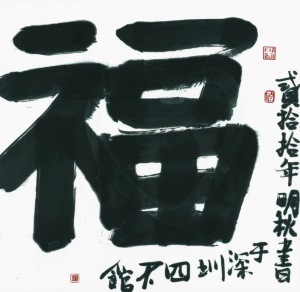 福
贰拾拾年明秋书
于深圳四不馆